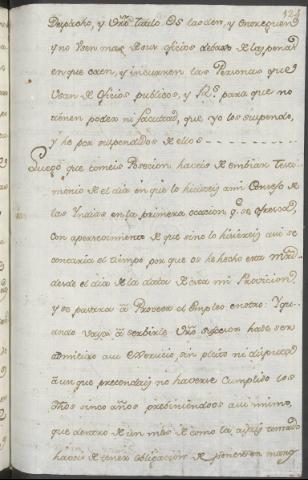 Despacho, y Vro. titulo Os las den, y entreguen
y no Usen mas Dhos. oficios debaxo de las penas
en que caen, y incurren las Personas que
Usan de Oficios publicos, y Rs. para que no
tienen poder ni facultad, que yo los suspendo,
y he por suspendidos de ellos
Luego que tomeis Posesion haveis de embiar Testi
monio de el dia en que lo hicieseis a mi Consejo de
las Indias en la primera ocasion q.e se ofresca,
con apercevimiento de que sino lo hiciereis assi se
contaria el tiempo por que os he hecho esta Mrd.
desde el dia de la data de esta mi Provicion,
y se pasara â Proveer el Empleo en otro: Y qu-
ando vaya â servirle Vro. subcesor ha de ser
admitido a el exercicio, sin pleito ni disputa
aunque pretendais no haverse Cumplido los
dhos cinco años previniendoos assi mismo,
que dentro de un mes de como la aiais tomado
haveis de tener obligacion de poner en man